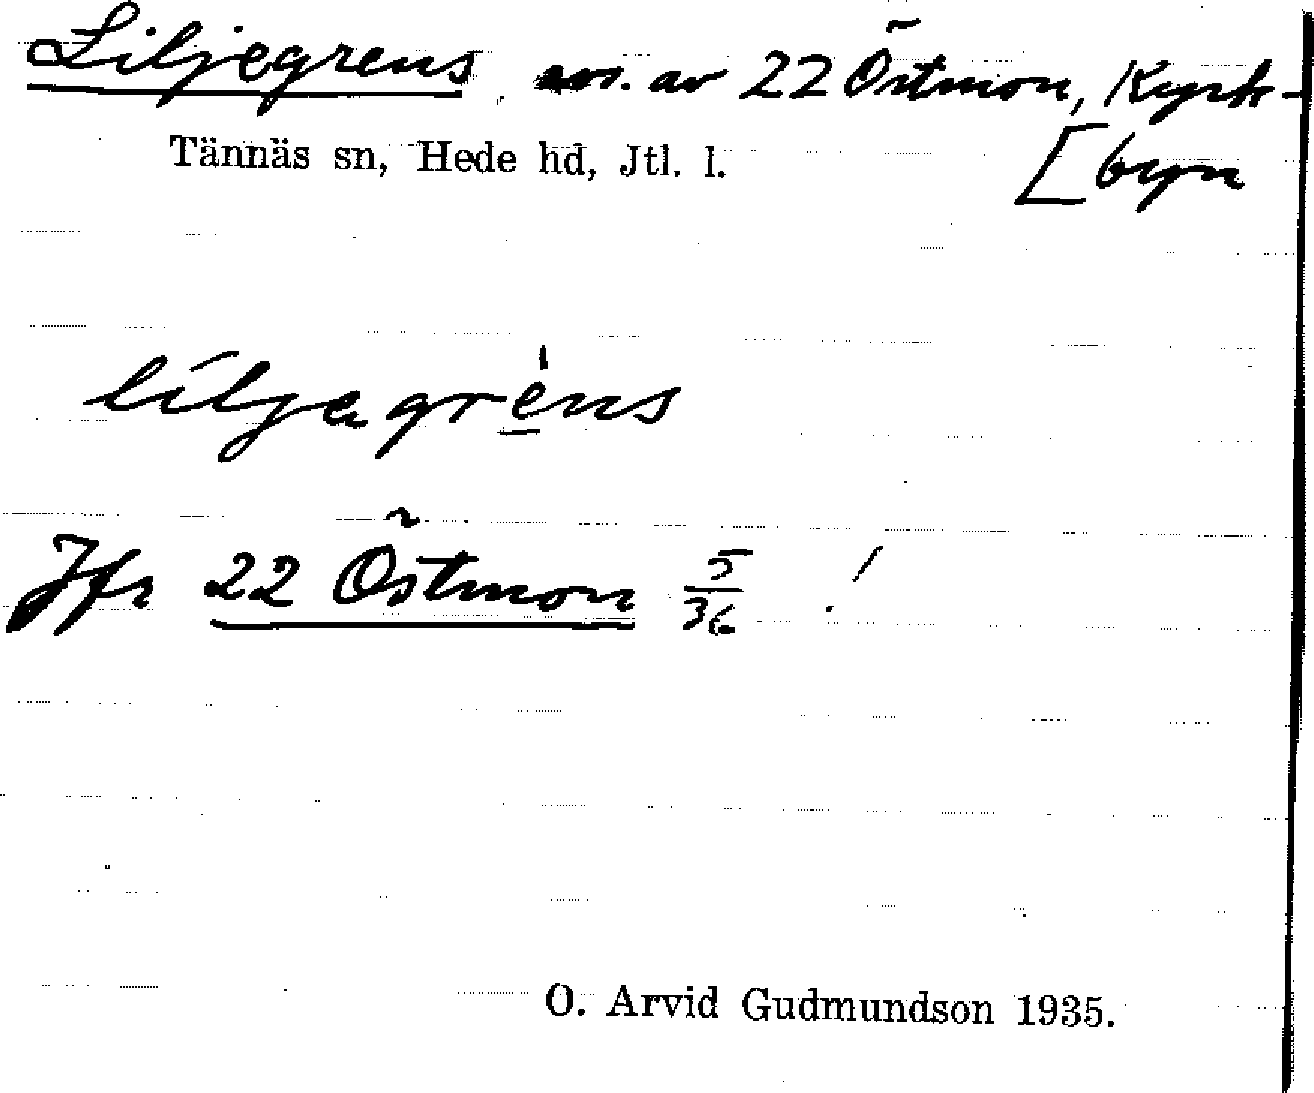 Liljegrens, av 22 Östmon, Kyrk-
[byn
Tännäs sn, Hede hd, Jtl. l.
liljagrens
Jfr 22 Östmon 5/36 !
O. Arvid Gudmundson 1935.